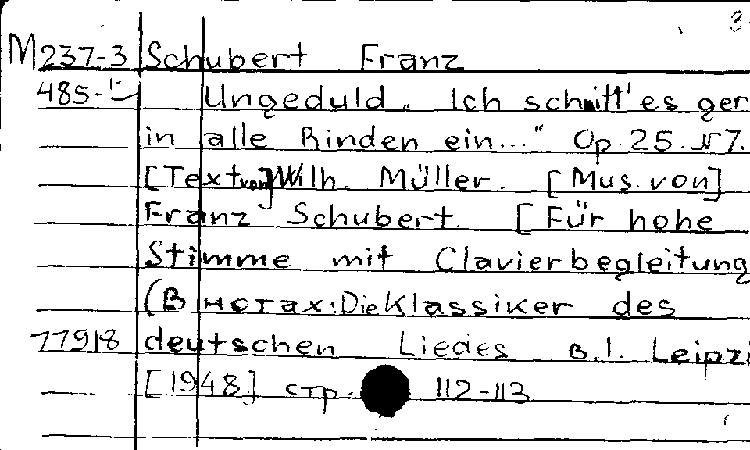 M237-3 Schubert Franz
485- Ungeduld „Ich schnitt'es ger
in alle Rinden ein..." Op 25. N7.
[Text von] Wilh. Müller. [Mus. von]
Franz Schubert. [Für hohe
Stimme mit Clavierbegleitung
(В нотах: Die Klassiker des
77918 deutschen Liedes B.I. Leipzi
[1948] стр. 112-113